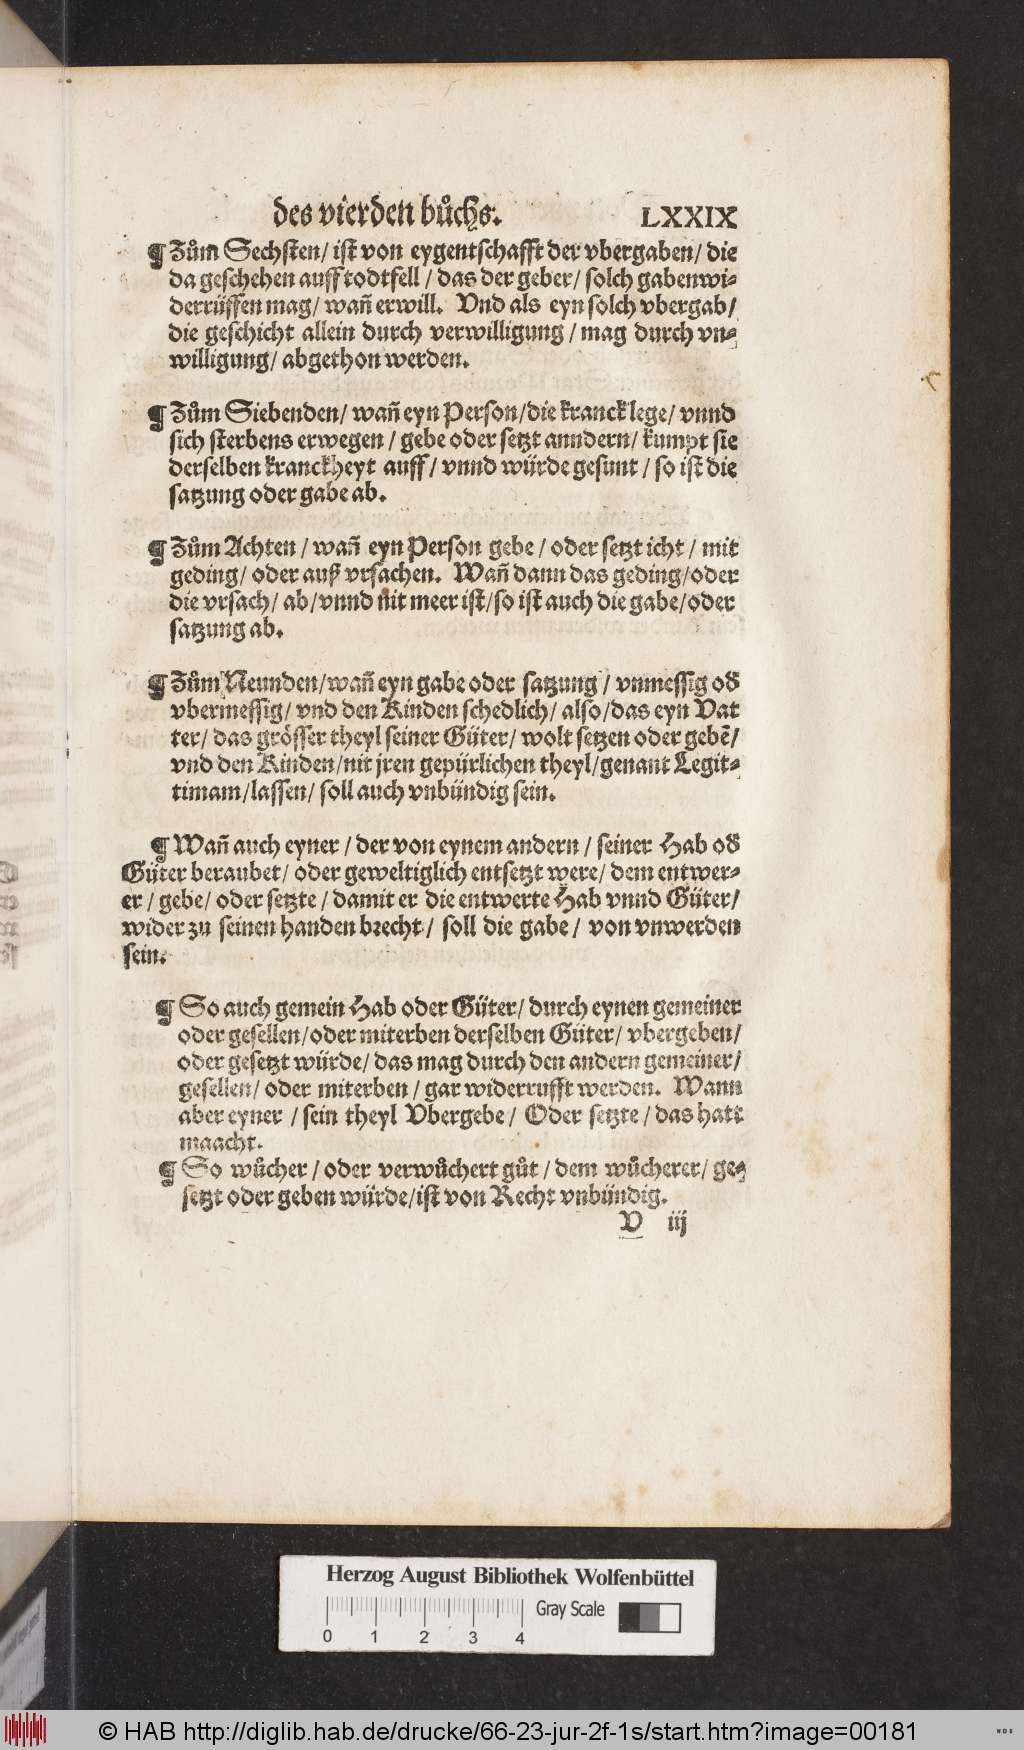 des vierden bůchs. LXXIX
¶ Zům Sechsten/ ist von eygentschafft der vbergaben/ die
da geschehen auff todtfell / das der geber/ solch gaben wi-
derrüffen mag/ wañ er will. Vnd als eyn solch vbergab/
die geschicht allein durch verwilligung / mag durch vn-
willigung/ abgethon werden.
¶ Zům Siebenden/ wañ eyn Person/die kranck lege/ vnnd
sich sterbens erwegen / gebe oder setzt anndern/ kumpt sie
derselben kranckheyt auff/ vnnd würde gesunt / so ist die
satzung oder gabe ab.
¶ Zům Achten / wañ eyn Person gebe / oder setzt icht / mit
geding/ oder auß vrsachen. Wañ dann das geding/oder
die vrsach/ ab/vnnd nit meer ist/so ist auch die gabe/oder
satzung ab.
¶ Zům Neunden/wañ eyn gabe oder satzung / vnmessig od̕
vbermessig/ vnd den Kinden schedlich/ also/das eyn Vat
ter/ das grösser theyl seiner Güter/ wolt setzen oder gebē/
vnd den Kinden/nit jren gepürlichen theyl/genant Legit-
timam/lassen/ soll auch vnbündig sein.
¶ Wañ auch eyner / der von eynem andern / seiner Hab od̕
Güter beraubet/ oder geweltiglich entsetzt were/ dem entwer-
er / gebe/ oder setzte / damit er die entwerte Hab vnnd Güter/
wider zu seinen handen brecht/ soll die gabe / von vnwerden
sein.
¶ So auch gemein Hab oder Güter/ durch eynen gemeiner
oder gesellen/oder miterben derselben Güter/ vbergeben/
oder gesetzt würde/ das mag durch den andern gemeiner/
gesellen/ oder miterben / gar widerrufft werden. Wann
aber eyner / sein theyl Vbergebe/ Oder setzte / das hatt
maacht.
¶ So wůcher / oder verwůchert gůt / dem wůcherer/ ge-
setzt oder geben würde/ist von Recht vnbündig.
V iij
Herzog August Bibliothek Wolfenbüttel
0 1 2 3 4 Gray Scale
© HAB http://diglib.hab.de/drucke/66-23-jur-2f-1s/start.htm?image=00181